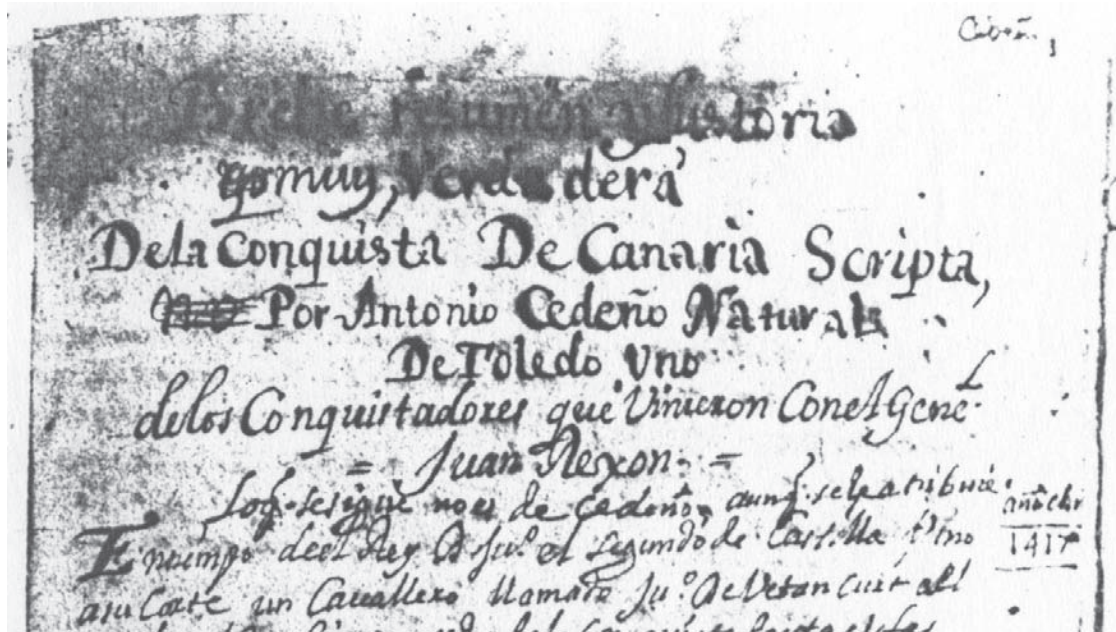 Brebe resumen y historia
muy Verdadera
De la Conquista De Canaria Scripta,
Por Antonio Cedeño Natural
De Toledo Vno
delos Conquistadores que Vinieron Con el Gene.L
= Juan Rexon. =
Loq. sesigue no es de Cedeño, aunq. sele atribuie.
año chr
1417
En tiempo del Rey D Ju.o el segundo de Castilla Vino
a su Corte un Cavallero llamado Ju.o De Vetancurt al